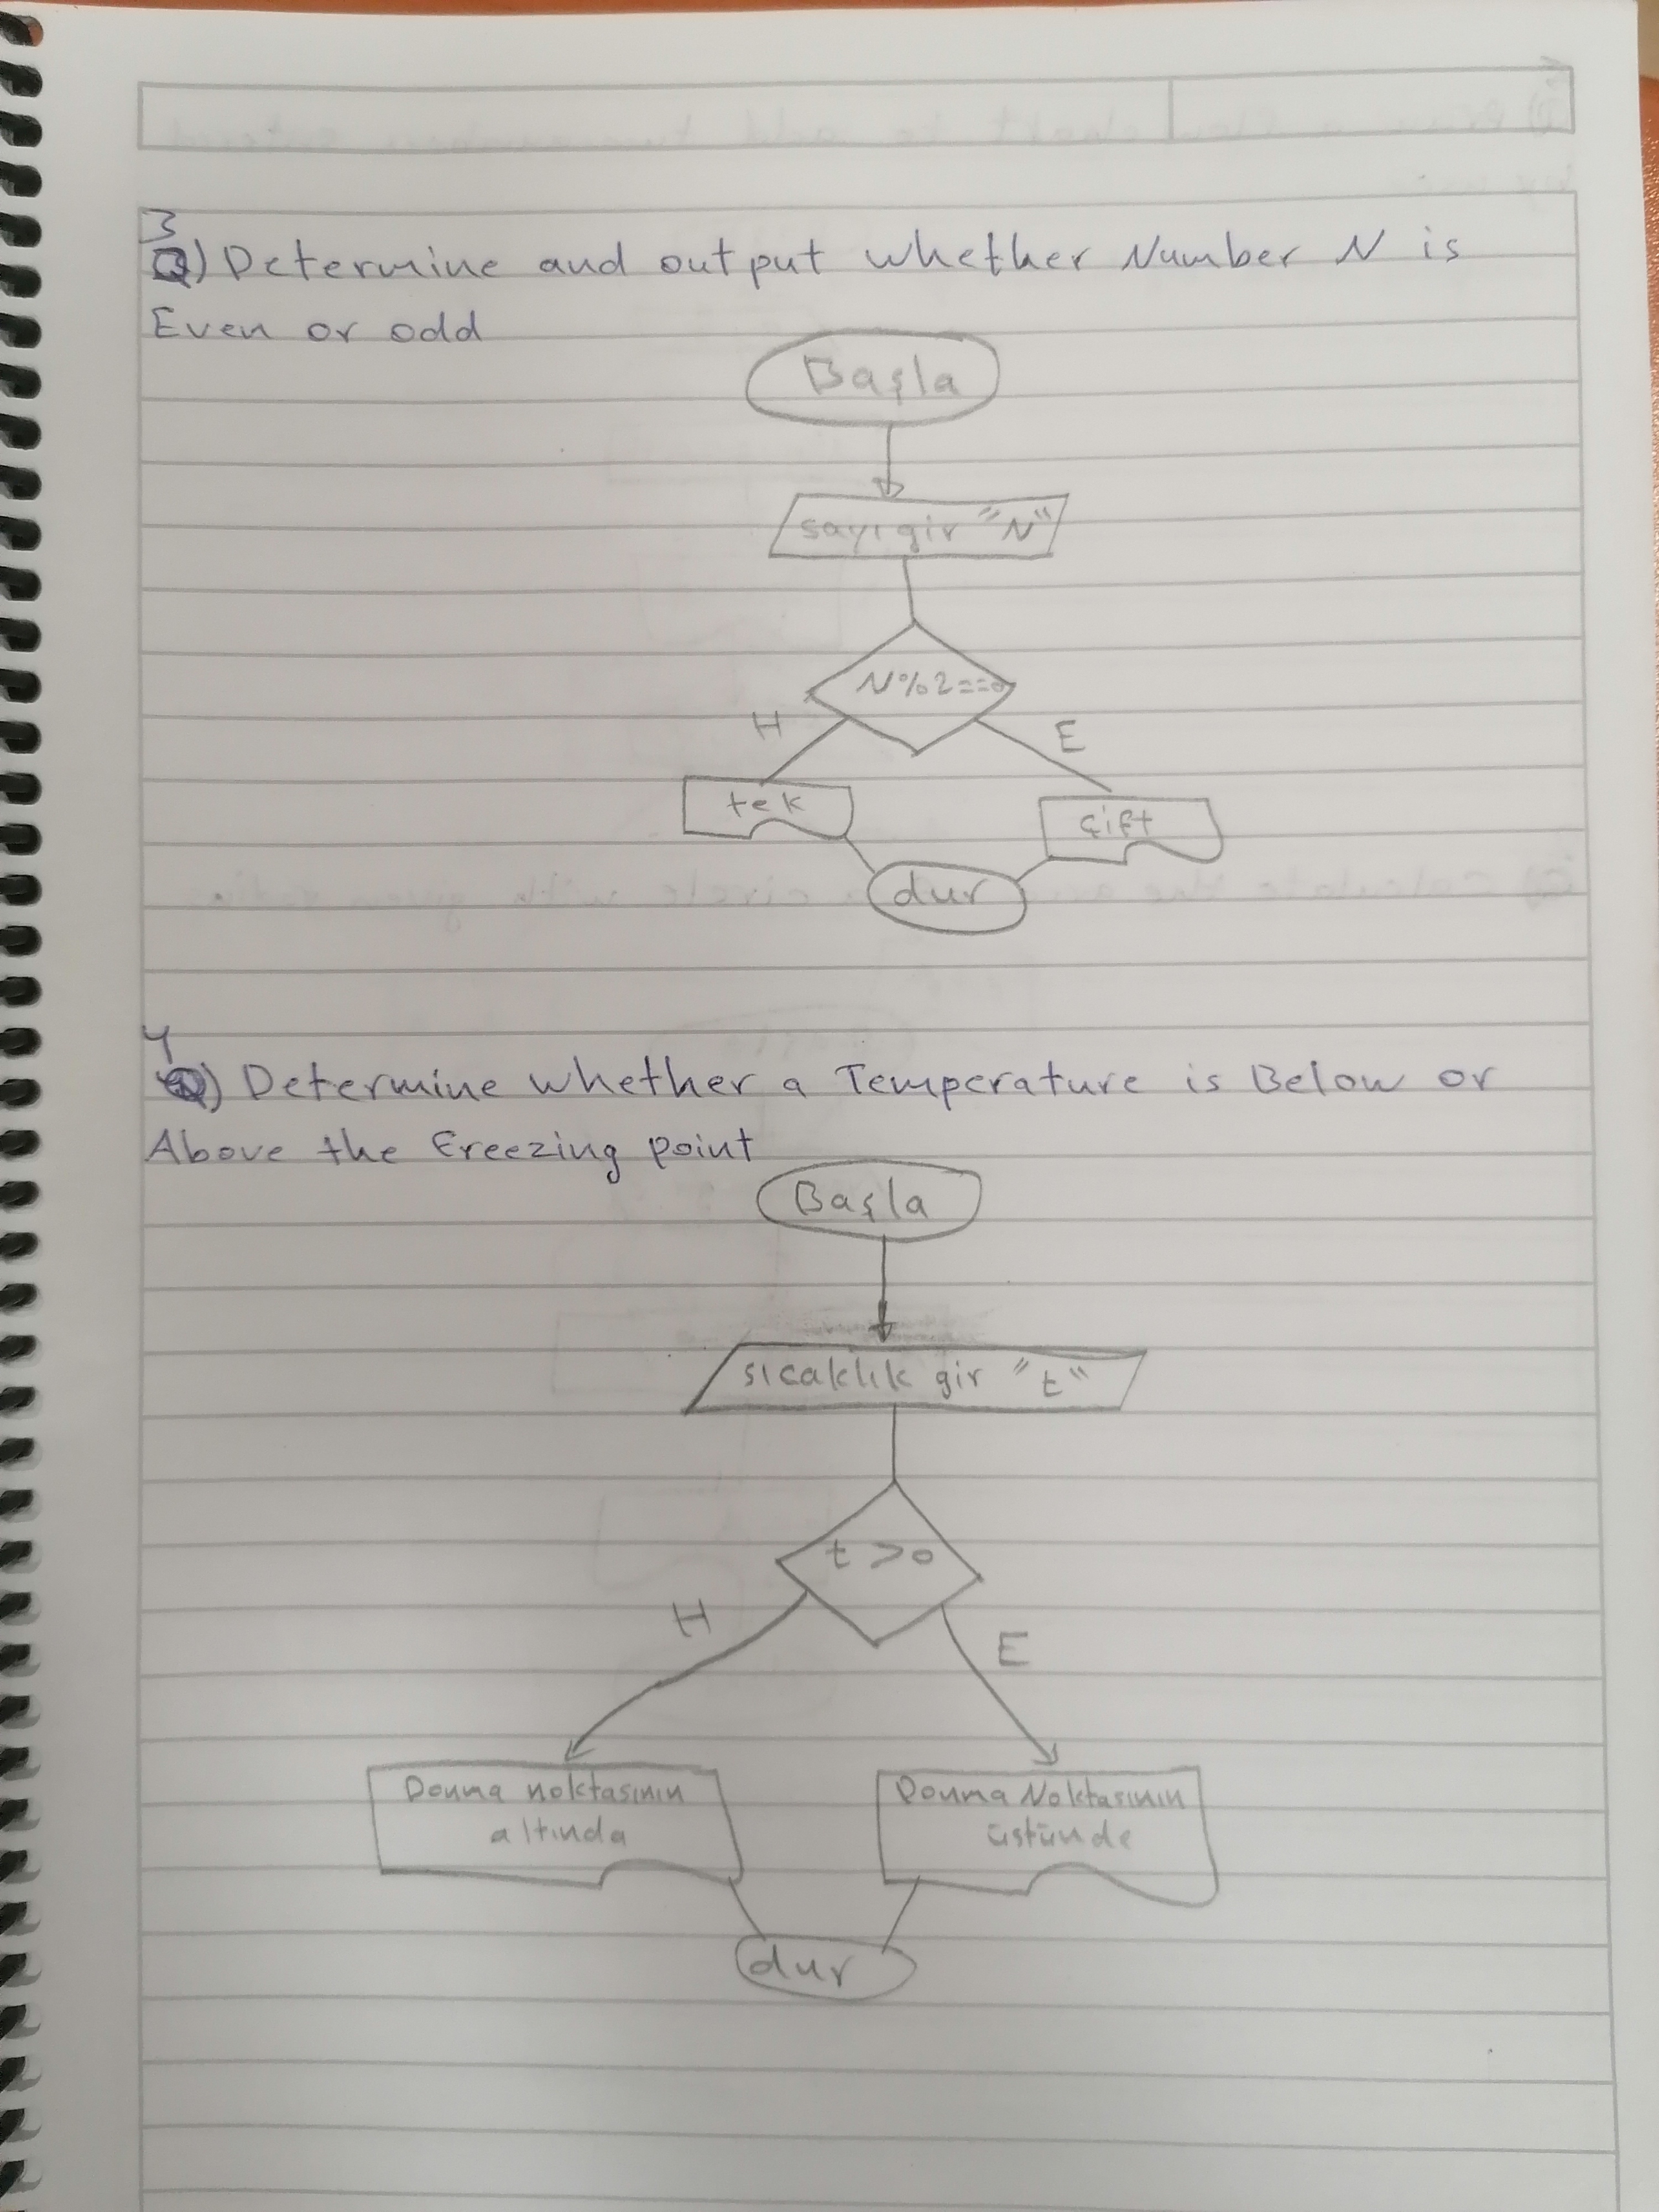 3) Determine and output whether Number N is
Even or odd
Başla
sayı gir "N"
N%2==0
H
E
tek
çift
dur
4) Determine whether a Temperature is Below or
Above the Freezing point
Başla
sıcaklık gir "t"
t >0
H
E
Donma noktasının
altında
Donma Noktasının
üstünde
dur